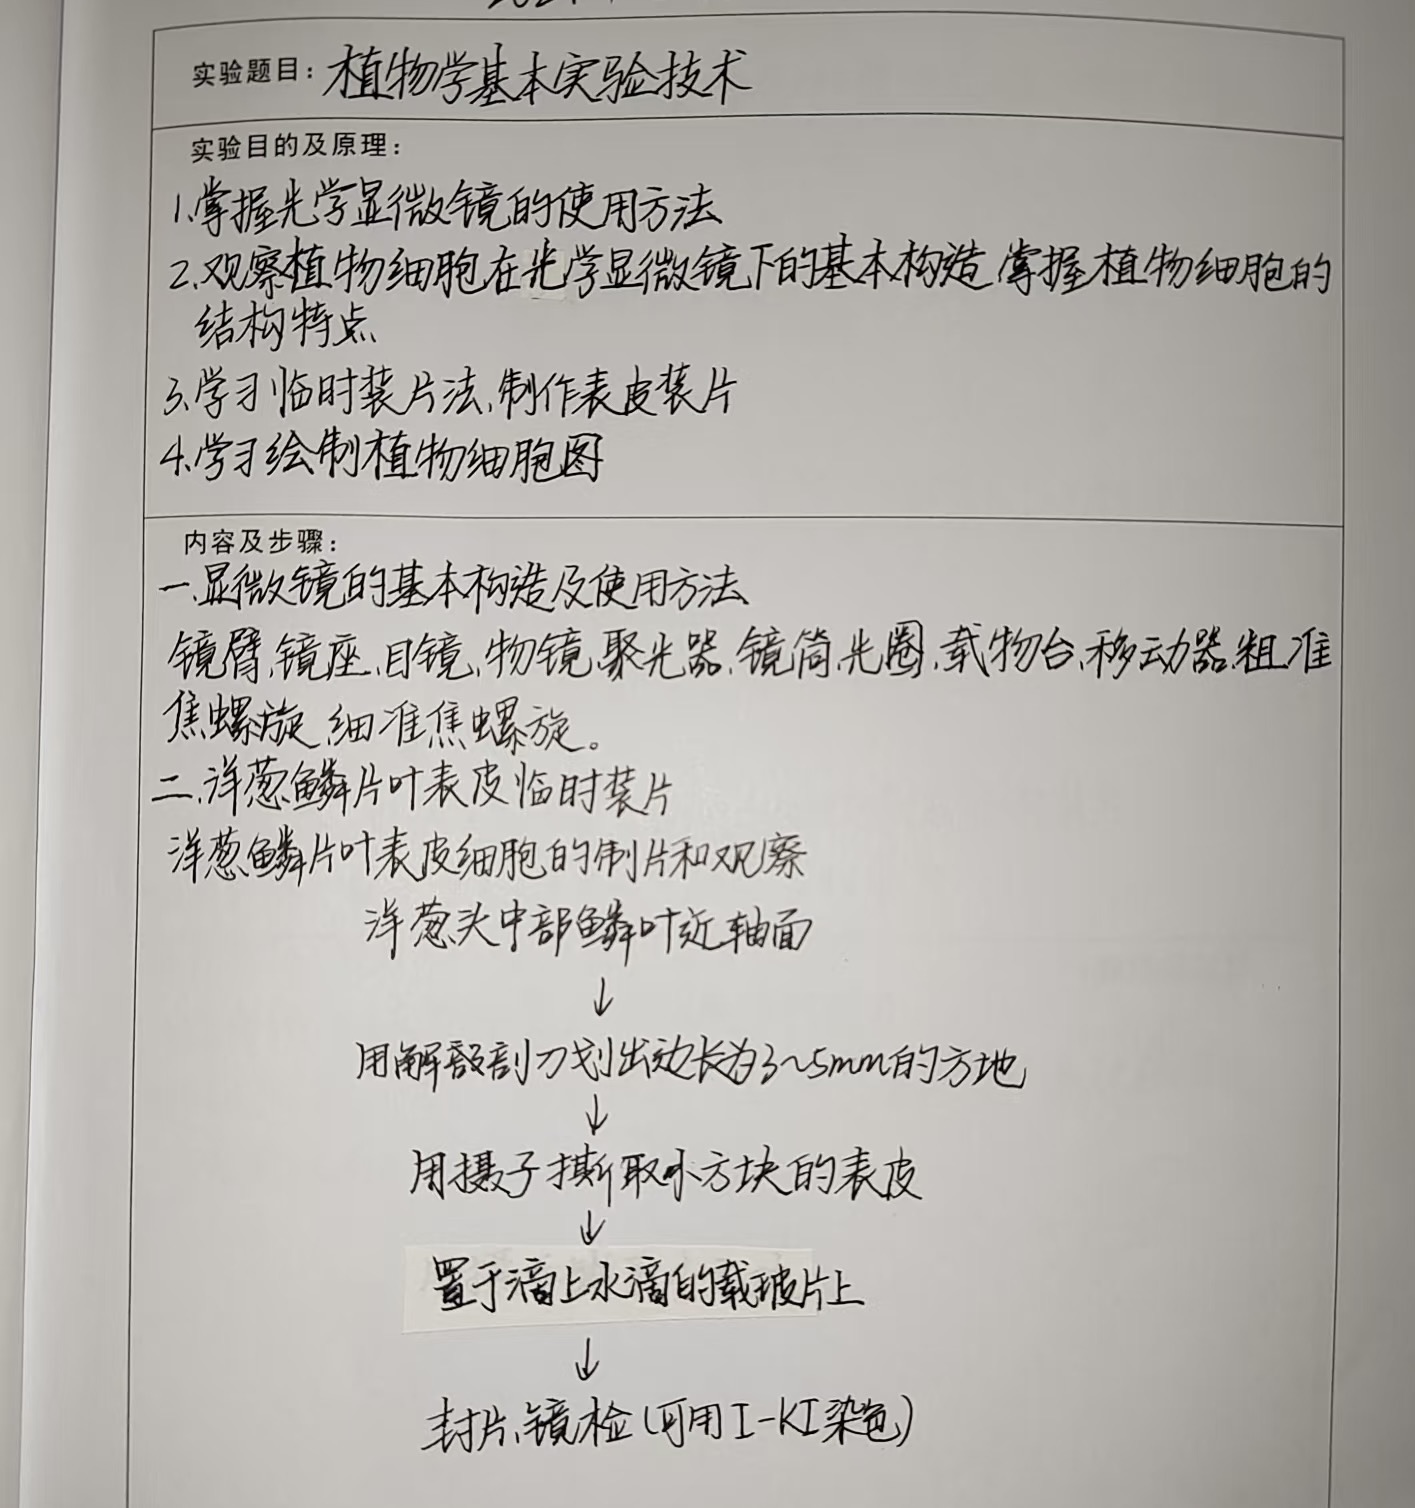 实验题目：植物学基本实验技术
实验目的及原理：
1、掌握光学显微镜的使用方法
2、观察植物细胞在光学显微镜下的基本构造、掌握植物细胞的
结构特点
3、学习临时装片法、制作表皮装片
4、学习绘制植物细胞图
内容及步骤：
一、显微镜的基本构造及使用方法
镜臂、镜座、目镜、物镜、聚光器、镜筒、光圈、载物台、移动器、粗准
焦螺旋、细准焦螺旋。
二、洋葱鳞片叶表皮临时装片
洋葱鳞片叶表皮细胞的制片和观察
洋葱头中部鳞叶近轴面
↓
用解剖刀划出边长为3~5mm的方地
↓
用摄子撕取小方块的表皮
↓
置于滴上水滴的载玻片上
↓
封片、镜检（可用I-KI染色）